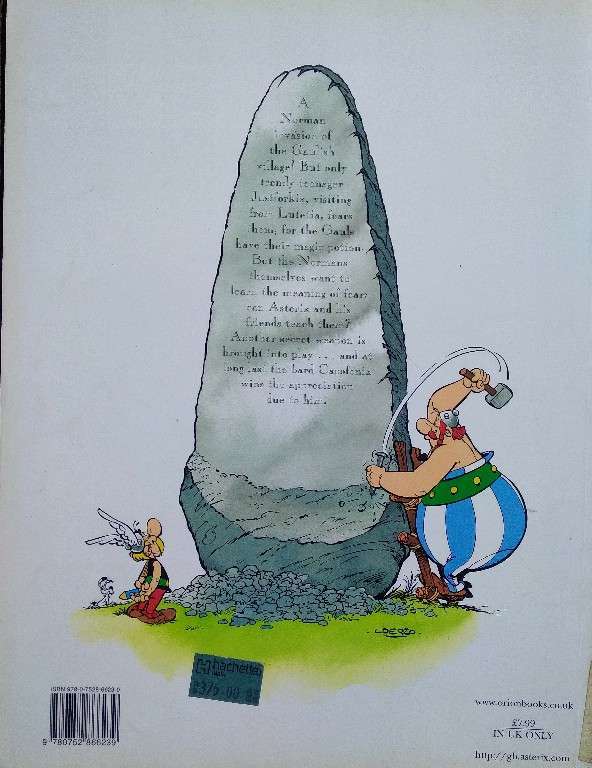 A
Norman
invasion of
the Gaulish
village! But only
trendy teenager
Justforkix, visiting
from Lutetia, fears
them, for the Gauls
have their magic potion.
But the Normans
themselves want to
learn the meaning of fear;
can Asterix and his
friends teach them?
Another secret weapon is
brought into play . . . and at
long last the bard Cacofonix
wins the appreciation
due to him.
UDERZO
hachette
ISBN 978-0-7528-6623-9
9 780752 866239
www.orionbooks.co.uk
£7.99
IN UK ONLY
http://gb.asterix.com